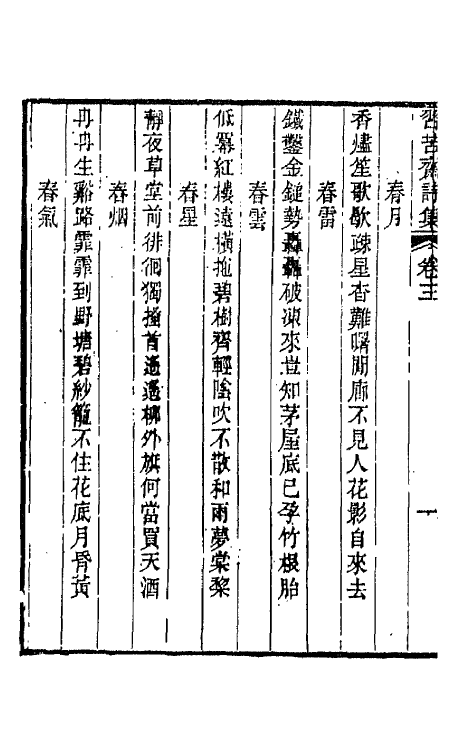 香苦齋詩集 卷三 一
春月
香燼笙歌歇疎星杳難曙閒廊不見人花影自來去
春雷
鐵鑿金鎚勢轟轟破凍來豈知茅屋底已孕竹根胎
春雲
低羃紅樓遠橫拖碧樹齊輕陰吹不散和雨夢棠棃
春星
靜夜草堂前徘徊獨搔首遙遙柳外旗何當買天酒
春烟
冉冉生谿路霏霏到野塘碧紗籠不住花底月昏黃
春氣